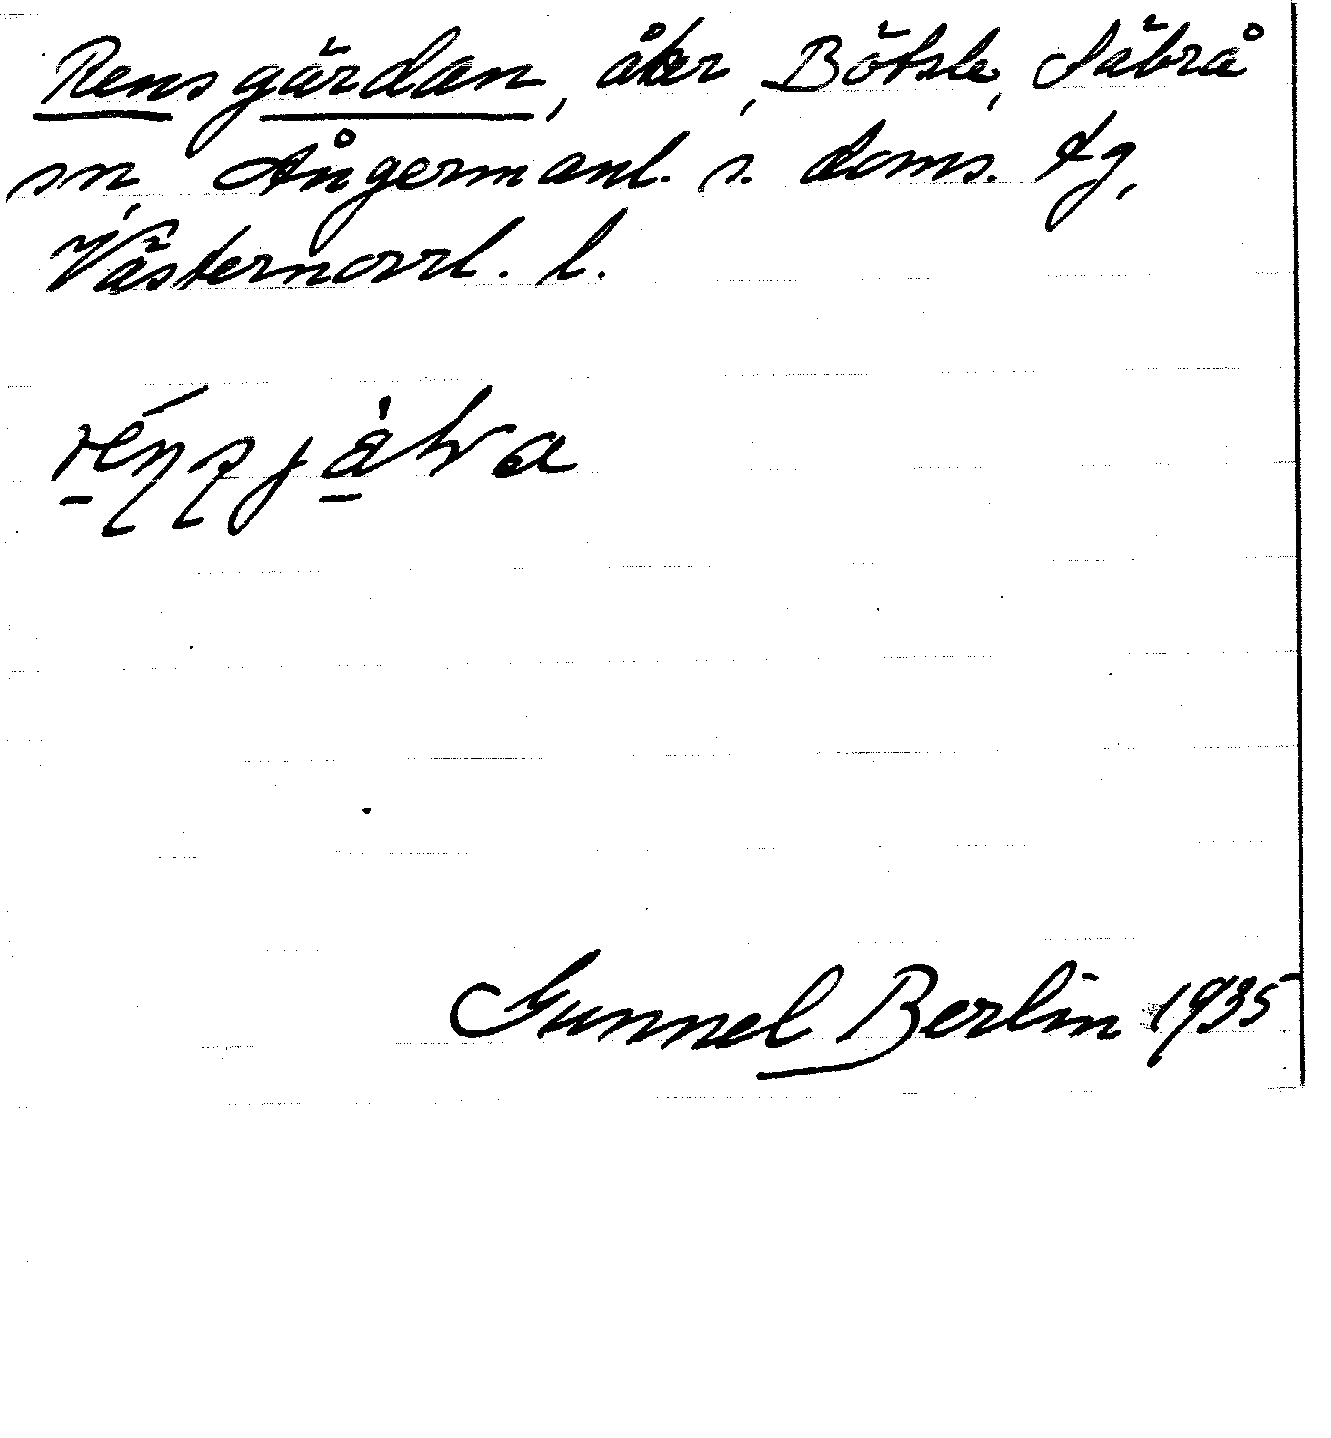 Rensgärdan, åker, Bötsle, Säbrå
sn, Ångermanl. s. doms. tg,
Västernorrl. l.
Gunnel Berlin 1935